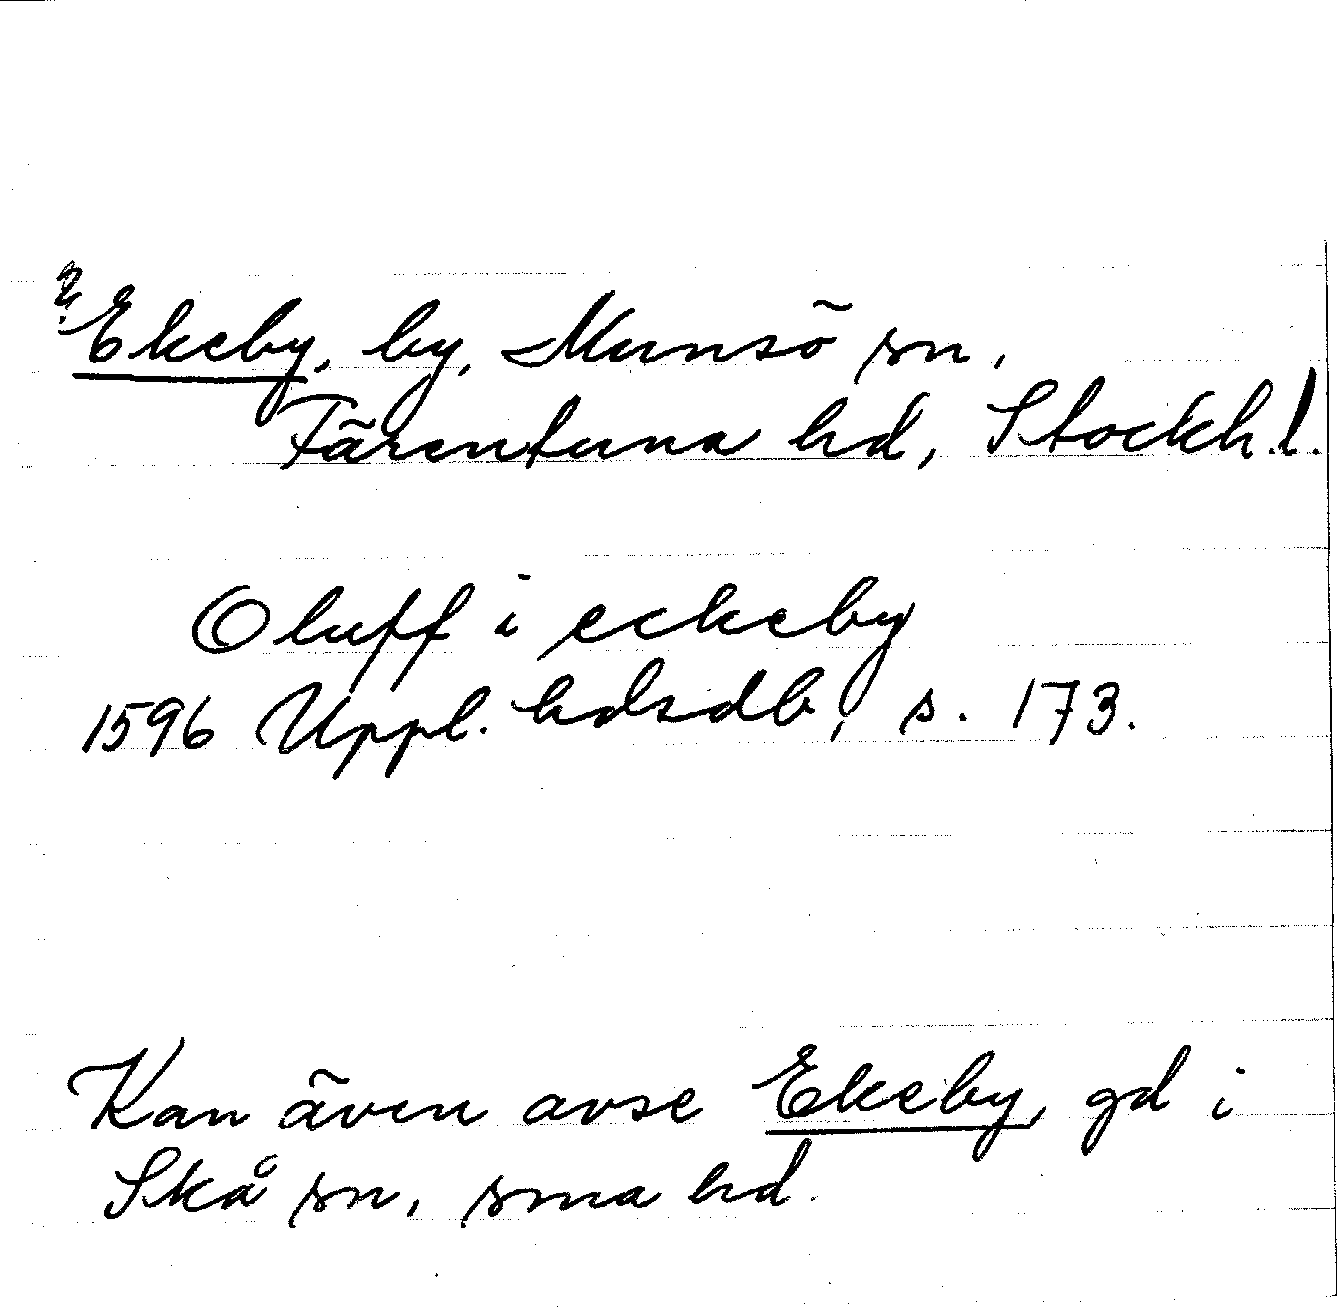 ? Ekeby, by, Munsö sn,
Färentuna hd, Stockh.l.
Oluff i eckeby
1596 Uppl. hdsdb, s. 173.
Kan även avse Ekeby, gd i
Skå sn, sma hd.